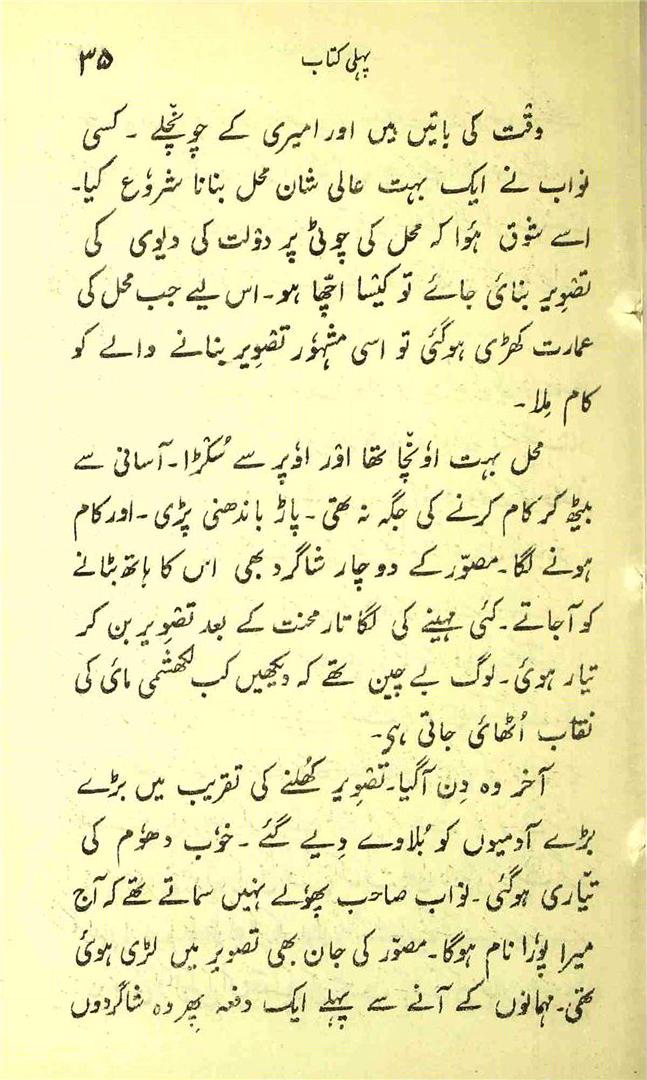 پہلی کتاب
۳۵
وقت کی باتیں ہیں اور امیری کے چونچلے ۔ کسی
نواب نے ایک بہت عالی شان محل بنانا شروع کیا۔
اسے شوق ہؤا کہ محل کی چوٹی پر دولت کی دیوی کی
تصویر بنائ جائے تو کیسا اچّھا ہو۔ اس لیے جب محل کی
عمارت کھڑی ہوگئی تو اسی مشہور تصویر بنانے والے کو
کام مِلا ۔
محل بہت اونچا تھا اور اوپر سے سُکڑا۔ آسانی سے
بیٹھ کر کام کرنے کی جگہ نہ تھی ۔ پاڑ باندھنی پڑی ۔ اور کام
ہونے لگا۔ مصوّر کے دو چار شاگرد بھی اس کا ہاتھ بٹانے
کو آجاتے ۔ کئی مہینے کی لگاتار محنت کے بعد تصویر بن کر
تیار ہوئ۔ لوگ بے چین تھے کہ دیکھیں کب لکھشمی مائ کی
نقاب اُٹھائ جاتی ہی۔
آخر وہ دِن آگیا۔ تصویر کھُلنے کی تقریب میں بڑے
بڑے آدمیوں کو بُلاوے دِیے گئے ۔ خوب دھوم کی
تیّاری ہوگئی۔ نواب صاحب پھولے نہیں سماتے تھے کہ آج
میرا پورا نام ہوگا۔ مصوّر کی جان بھی تصویر میں لڑی ہوئ
تھی۔ مہمانوں کے آنے سے پہلے ایک دفعہ پھر وہ شاگردوں